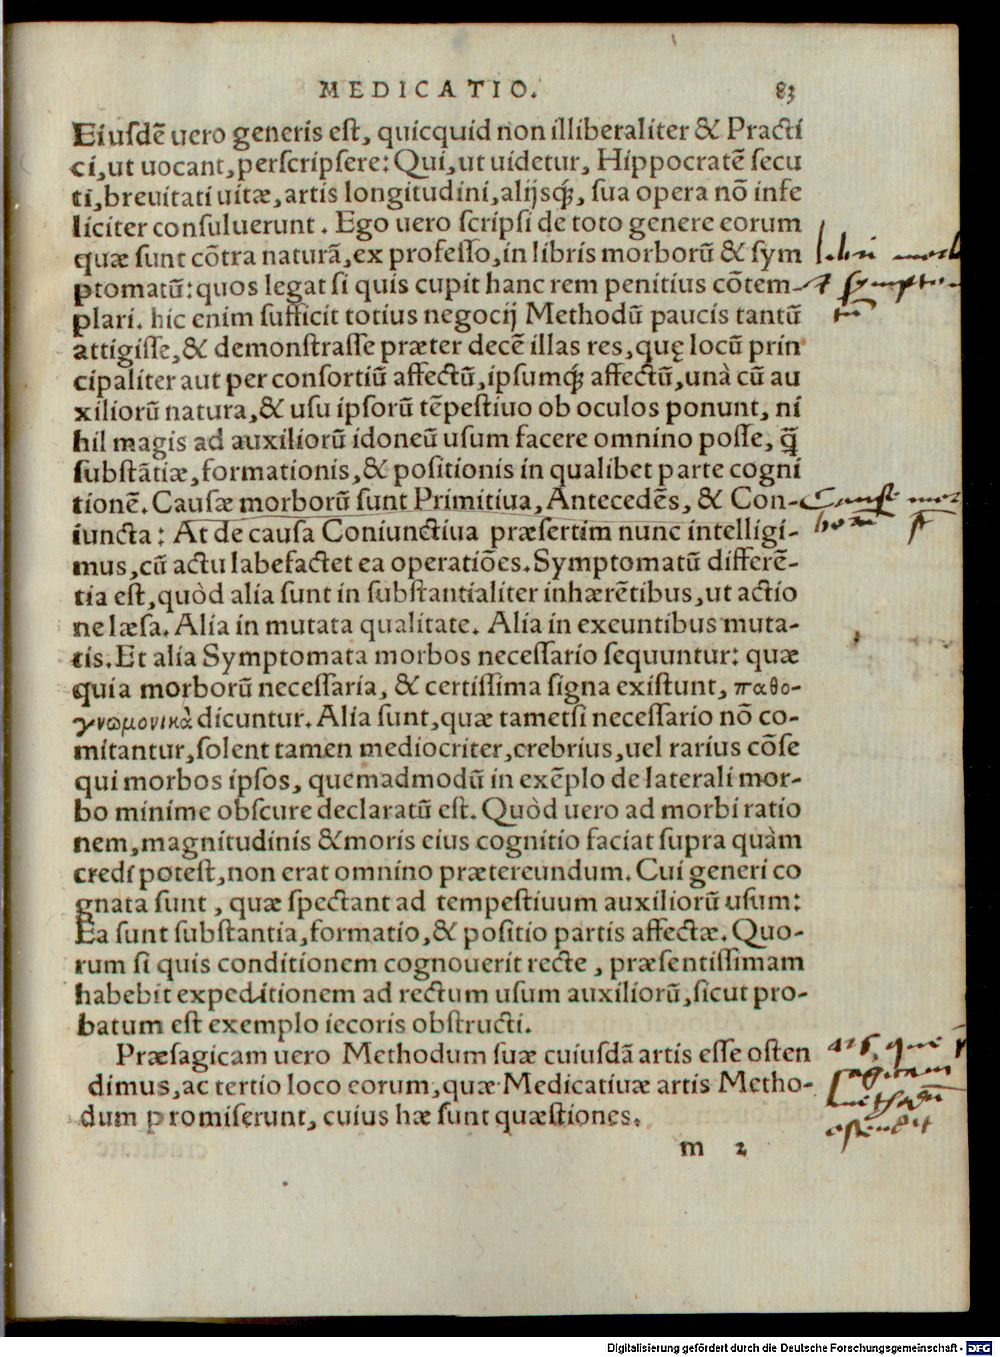 MEDICATIO. 83
Eiusdẽ uero generis est, quicquid non illiberaliter & Practi
ci, ut uocant, perscripsere: Qui, ut uidetur, Hippocratẽ secu
ti, breuitati uitæ, artis longitudini, alijsq́;, sua opera nõ infe
liciter consuluerunt. Ego uero scripsi de toto genere eorum
quæ sunt cõtra naturã, ex professo, in libris morborũ & sym
ptomatũ: quos legat si quis cupit hanc rem penitius cõtem-
plari. hic enim sufficit totius negocij Methodũ paucis tantũ
attigisse, & demonstrasse præter decẽ illas res, quę locũ prin
cipaliter aut per consortiũ affectũ, ipsumq́; affectũ, unà cũ au
xiliorũ natura, & usu ipsorũ tẽpestiuo ob oculos ponunt, ni
hil magis ad auxiliorũ idoneũ usum facere omnino posse, q̃
substãtiæ, formationis, & positionis in qualibet parte cogni
tionẽ. Causæ morborũ sunt Primitiua, Antecedẽs, & Con-
iuncta: At de causa Coniunctiua præsertim nunc intelligi-
mus, cũ actu labefactet ea operatiões. Symptomatũ differẽ-
tia est, quòd alia sunt in substantialiter inhærẽtibus, ut actio
ne læsa. Alia in mutata qualitate. Alia in exeuntibus muta-
tis. Et alia Symptomata morbos necessario sequuntur: quæ
quia morborũ necessaria, & certissima signa existunt, παθο-
γνωμονικὰ dicuntur. Alia sunt, quæ tametsi necessario nõ co-
mitantur, solent tamen mediocriter, crebrius, uel rarius cõse
qui morbos ipsos, quemadmodũ in exẽplo de laterali mor-
bo minime obscure declaratũ est. Quòd uero ad morbi ratio
nem, magnitudinis & moris eius cognitio faciat supra quàm
credi potest, non erat omnino prætereundum. Cui generi co
gnata sunt, quæ spectant ad tempestiuum auxiliorũ usum:
Ea sunt substantia, formatio, & positio partis affectæ. Quo-
rum si quis conditionem cognouerit recte, præsentissimam
habebit expeditionem ad rectum usum auxiliorũ, sicut pro-
batum est exemplo iecoris obstructi.
Præsagicam uero Methodum suæ cuiusdã artis esse osten
dimus, ac tertio loco eorum, quæ Medicatiuæ artis Metho-
dum promiserunt, cuius hæ sunt quæstiones.
m 2
libri morb
& sympto
tũ
Causę mor
borũ st
que p
sagicam
methodũ
ostendit
Digitalisierung gefördert durch die Deutsche Forschungsgemeinschaft - DFG